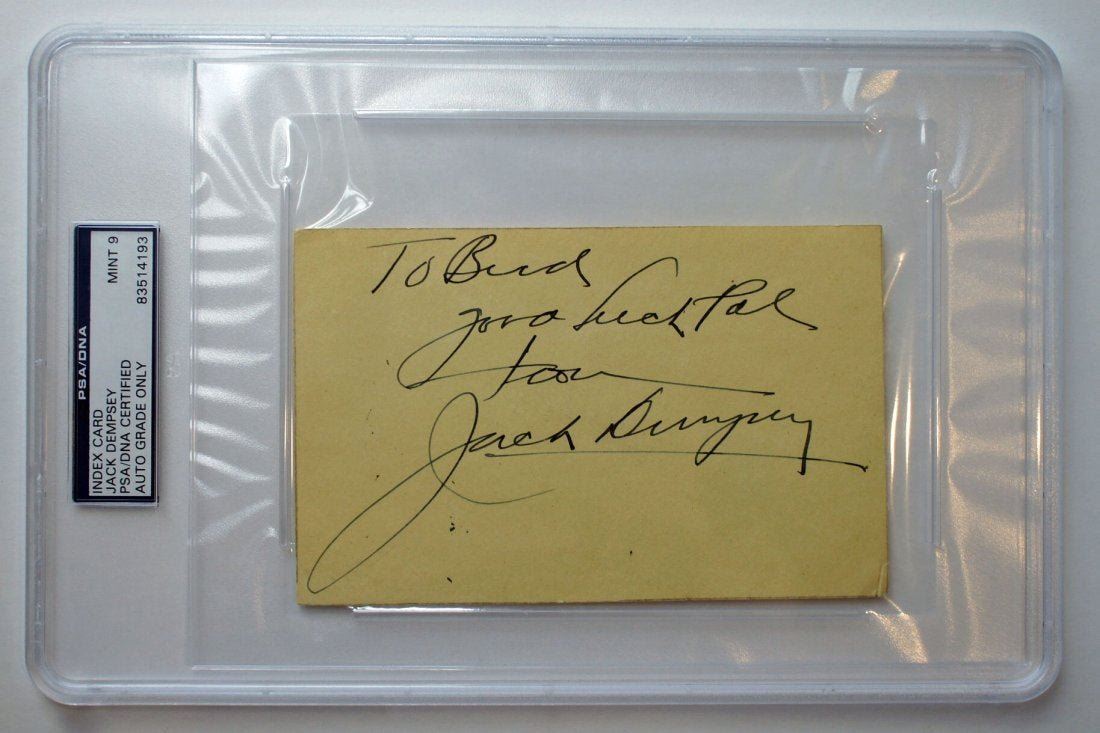 PSA/DNA
INDEX CARD
JACK DEMPSEY
PSA/DNA CERTIFIED
AUTO GRADE ONLY
MINT 9
83514193
To Bud
good luck Pal
from
Jack Dempsey